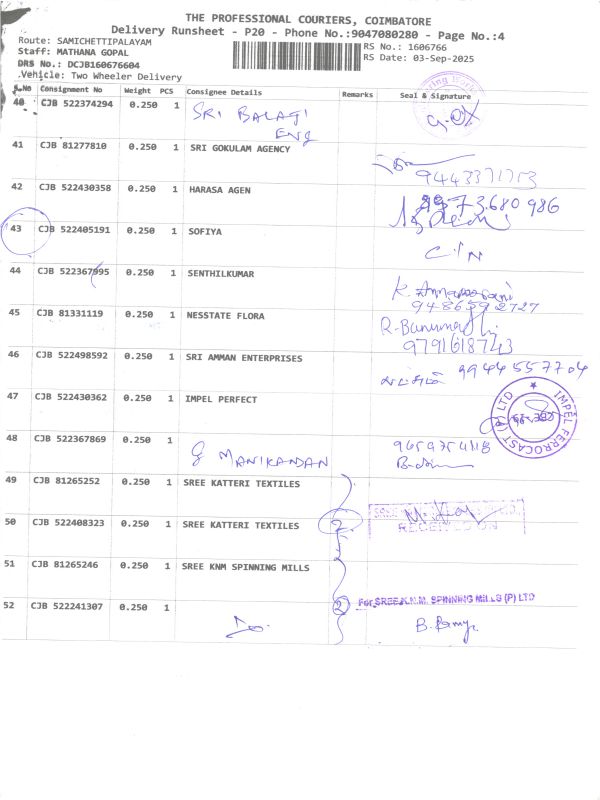 THE PROFESSIONAL COURIERS, COIMBATORE
Delivery Runsheet - P20 - Phone No.:9047080280 - Page No.:4
Route: SAMICHETTIPALAYAM
RS No.: 1606766
Staff: MATHANA GOPAL
RS Date: 03-Sep-2025
DRS No.: DCJB160676604
Vehicle: Two Wheeler Delivery
S.No Consignment No Weight PCS Consignee Details Remarks Seal & Signature
40 CJB 522374294 0.250 1 SRI BALAGI
ENG
41 CJB 81277810 0.250 1 SRI GOKULAM AGENCY
9443371713
42 CJB 522430358 0.250 1 HARASA AGEN
680 986
43 CJB 522405191 0.250 1 SOFIYA
44 CJB 522367995 0.250 1 SENTHILKUMAR
K.
9486592727
45 CJB 81331119 0.250 1 NESSTATE FLORA
R-Banumathi
9791618743
46 CJB 522498592 0.250 1 SRI AMMAN ENTERPRISES
9944557704
47 CJB 522430362 0.250 1 IMPEL PERFECT
IMPEL FERROCAST (P) LTD
48 CJB 522367869 0.250 1 G MANIKANDAN
9659754118
49 CJB 81265252 0.250 1 SREE KATTERI TEXTILES
50 CJB 522408323 0.250 1 SREE KATTERI TEXTILES 2
RECEIVED ON
51 CJB 81265246 0.250 1 SREE KNM SPINNING MILLS
52 CJB 522241307 0.250 1 Do. 2 For SREE K.N.M. SPINNING MILLS (P) LTD
B. Ramya